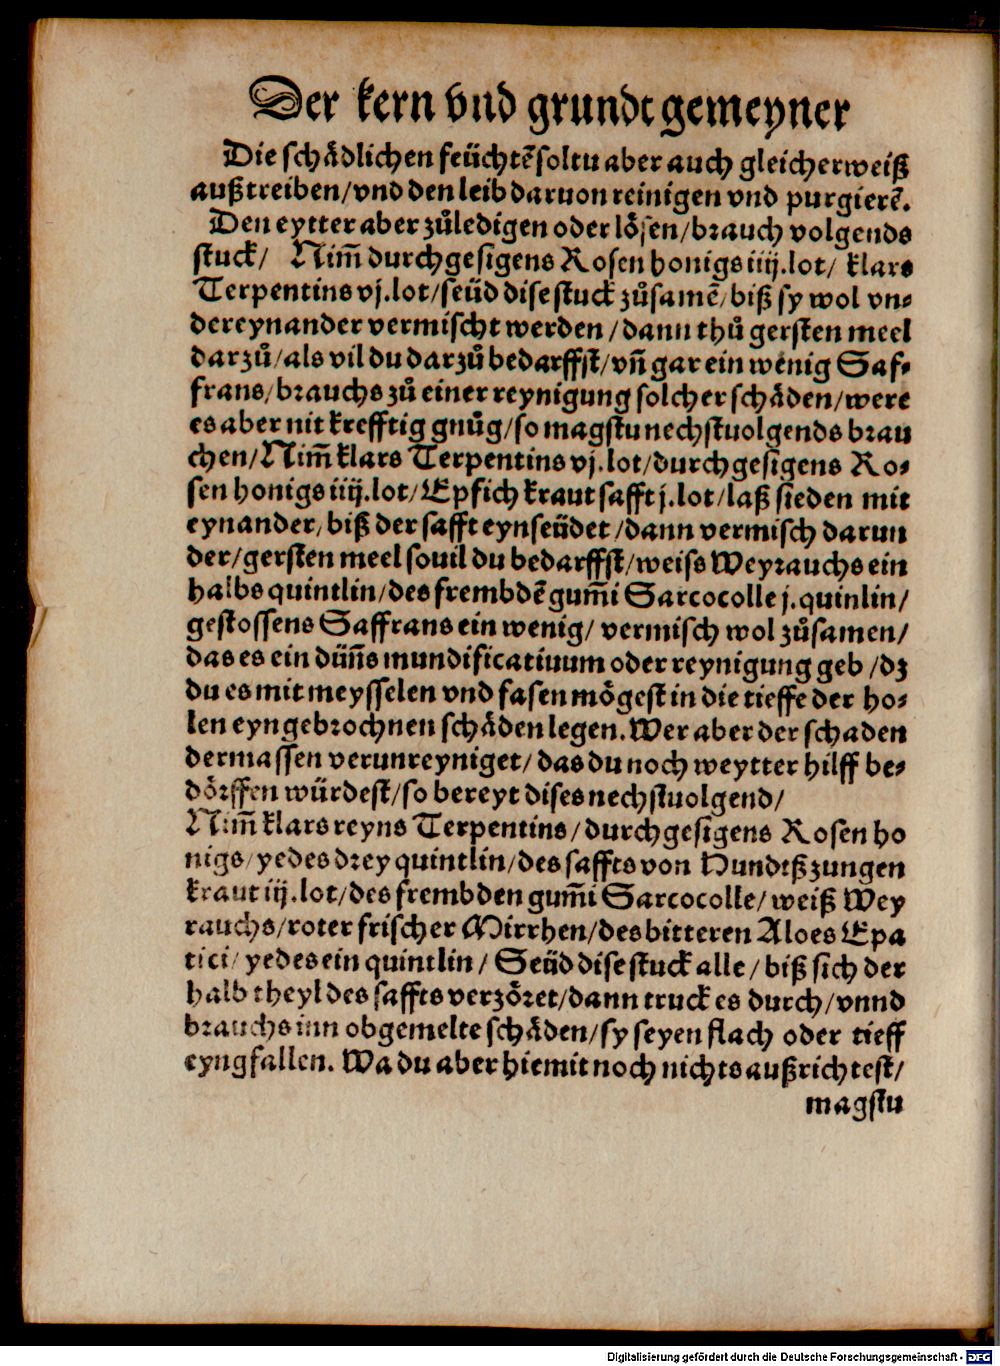 Der kern vnd grundt gemeyner
Die schådlichen feüchtẽ soltu aber auch gleicherweiß
außtreiben/vnd den leib daruon reinigen vnd purgierẽ.
Den eytter aber zůledigen oder lősen/brauch volgends
stuck/ Nim̃ durchgesigens Rosen honigs iiij.lot/ klars
Terpentins vj.lot/seüd dise stuck zůsamẽ/biß sy wol vn-
dereynander vermischt werden/dann thů gersten meel
darzů/als vil du darzů bedarffst/vñ gar ein wenig Saf-
frans/brauchs zů einer reynigung solcher schåden/were
es aber nit krefftig gnůg/so magstu nechstuolgends brau
chen/Nim̃ klars Terpentins vj.lot/durchgesigens Ro-
sen honigs iiij.lot/Epfich kraut safft j.lot/laß sieden mit
eynander/biß der safft eynseüdet/dann vermisch darun
der/gersten meel souil du bedarffst/weiss Weyrauchs ein
halbs quintlin/des frembdẽ gum̃i Sarcocolle j.quinlin/
gestossens Saffrans ein wenig/ vermisch wol zůsamen/
das es ein düñs mundificatiuum oder reynigung geb/dz
du es mit meysselen vnd fasen mőgest in die tieffe der ho-
len eyngebrochnen schåden legen. Wer aber der schaden
dermassen verunreyniget/das du noch weytter hilff be-
dőrffen würdest/so bereyt dises nechstuolgend/
Nim̃ klars reyns Terpentins/durchgesigens Rosen ho
nigs/yedes drey quintlin/des saffts von Hundtßzungen
kraut iij.lot/des frembden gum̃i Sarcocolle/weiß Wey
rauchs/roter frischer Mirrhen/des bitteren Aloes Epa
tici/yedes ein quintlin/ Seüd dise stuck alle/biß sich der
halb theyl des saffts verzőret/dann truck es durch/vnnd
brauchs inn obgemelte schåden/sy seyen flach oder tieff
eyngfallen. Wa du aber hiemit noch nichts außrichtest/
magstu
Digitalisierung gefördert durch die Deutsche Forschungsgemeinschaft - DFG